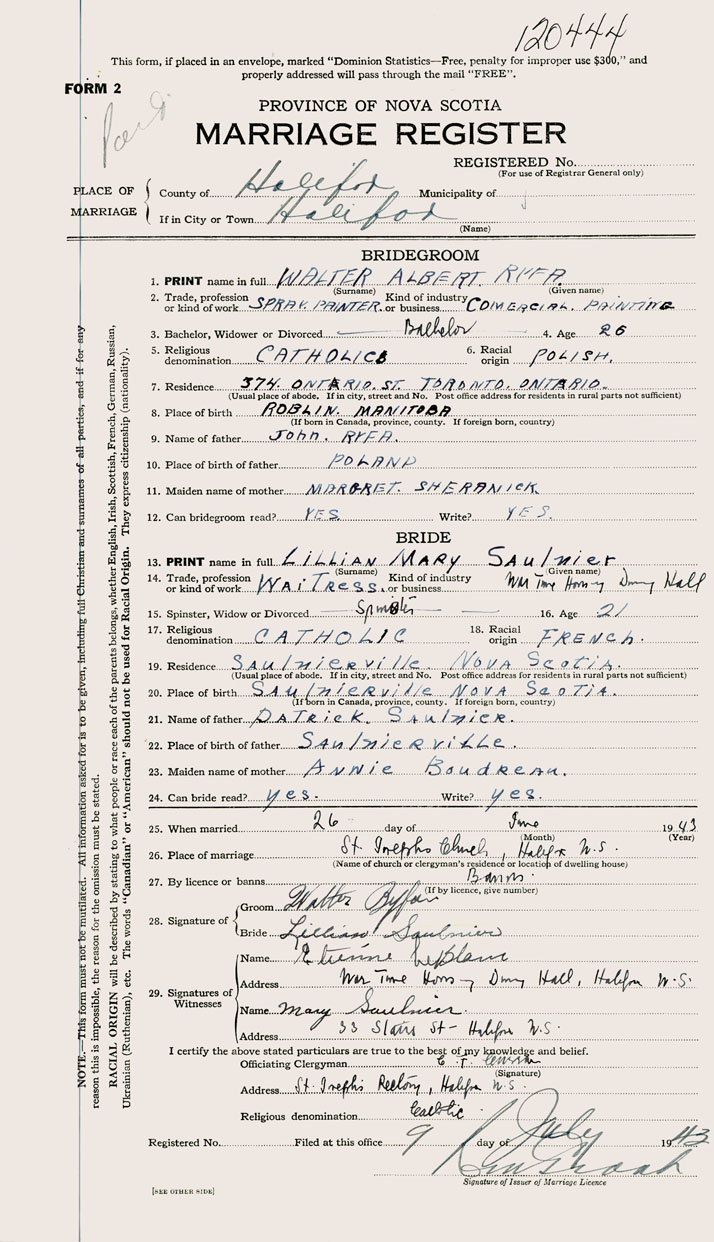 120444
This form, if placed in an envelope, marked "Dominion Statistics—Free, penalty for improper use $300," and
properly addressed will pass through the mail "FREE".
FORM 2
PROVINCE OF NOVA SCOTIA
MARRIAGE REGISTER
REGISTERED No.
(For use of Registrar General only)
PLACE OF MARRIAGE
County of Halifax Municipality of
If in City or Town Halifax
(Name)
BRIDEGROOM
1. PRINT name in full WALTER ALBERT RYFA
(Surname) (Given name)
2. Trade, profession or kind of work SPRAY PAINTER. Kind of industry or business COMERCIAL. PAINTING
3. Bachelor, Widower or Divorced Bachelor 4. Age 26
5. Religious denomination CATHOLIC 6. Racial origin POLISH.
7. Residence 374. ONTARIO. ST. TORONTO. ONTARIO.
(Usual place of abode. If in city, street and No. Post office address for residents in rural parts not sufficient)
8. Place of birth ROBLIN. MANITOBA
(If born in Canada, province, county. If foreign born, country)
9. Name of father John. RYFA.
10. Place of birth of father POLAND
11. Maiden name of mother MARGRET. SHERANICK
12. Can bridegroom read? YES Write? YES.
BRIDE
13. PRINT name in full LILLIAN MARY Saulnier
(Surname) (Given name)
14. Trade, profession or kind of work WAiTress. Kind of industry or business War Time Hall
15. Spinster, Widow or Divorced Spinster 16. Age 21
17. Religious denomination CATHOLIC 18. Racial origin FRENCH.
19. Residence Saulnierville Nova Scotia.
(Usual place of abode. If in city, street and No. Post office address for residents in rural parts not sufficient)
20. Place of birth Saulnierville Nova Scotia.
(If born in Canada, province, county. If foreign born, country)
21. Name of father PATRICK. Saulnier.
22. Place of birth of father Saulnierville.
23. Maiden name of mother Annie Boudreau.
24. Can bride read? yes. Write? yes.
25. When married 26 day of June 1943
(Month) (Year)
26. Place of marriage St. Josephs Church, Halifax N.S.
(Name of church or clergyman's residence or location of dwelling house)
27. By licence or banns Banns.
(If by licence, give number)
28. Signature of
Groom Walter
Bride Lillian Saulnier
29. Signatures of Witnesses
Name Etienne LeBlanc
Address War Time Hall, Halifax N.S.
Name Mary Saulnier.
Address 33 St - Halifax N.S.
I certify the above stated particulars are true to the best of my knowledge and belief.
Officiating Clergyman
(Signature)
Address St. Josephs Rectory, Halifax N.S.
Religious denomination Catholic
Registered No. Filed at this office 9 day of July 1943
Signature of Issuer of Marriage Licence
[SEE OTHER SIDE]
NOTE.—This form must not be mutilated. All information asked for is to be given, including full Christian and surnames of all parties, and if for any
reason this is impossible, the reason for the omission must be stated.
RACIAL ORIGIN will be described by stating to what people or race each of the parents belongs, whether English, Irish, Scottish, French, German, Russian,
Ukrainian (Ruthenian), etc. The words "Canadian" or "American" should not be used for Racial Origin. They express citizenship (nationality).